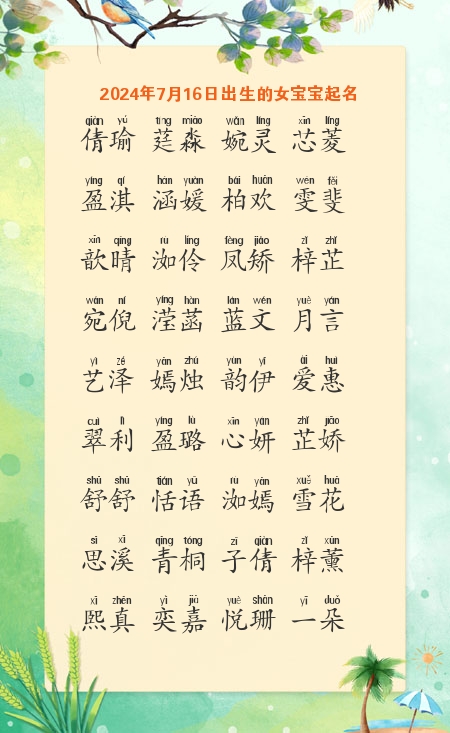 2024年7月16日出生的女宝宝起名
qiàn yú tíng miǎo wǎn líng xīn líng
倩瑜 莛淼 婉灵 芯菱
yíng qí hán yuàn bǎi huān wén fěi
盈淇 涵媛 柏欢 雯斐
xīn qíng rù líng fèng jiǎo zǐ zhǐ
歆晴 洳伶 凤矫 梓芷
wǎn ní yíng hàn lán wén yuè yán
宛倪 滢菡 蓝文 月言
yì zé yān zhú yùn yī ài huì
艺泽 嫣烛 韵伊 爱惠
cuì lì yíng lù xīn yán zhǐ jiāo
翠利 盈璐 心妍 芷娇
shū shū tián yǔ rù yān xuě huā
舒舒 恬语 洳嫣 雪花
sī xī qīng tóng zǐ qiàn zǐ xūn
思溪 青桐 子倩 梓薰
xī zhēn yì jiā yuè shān yī duǒ
熙真 奕嘉 悦珊 一朵